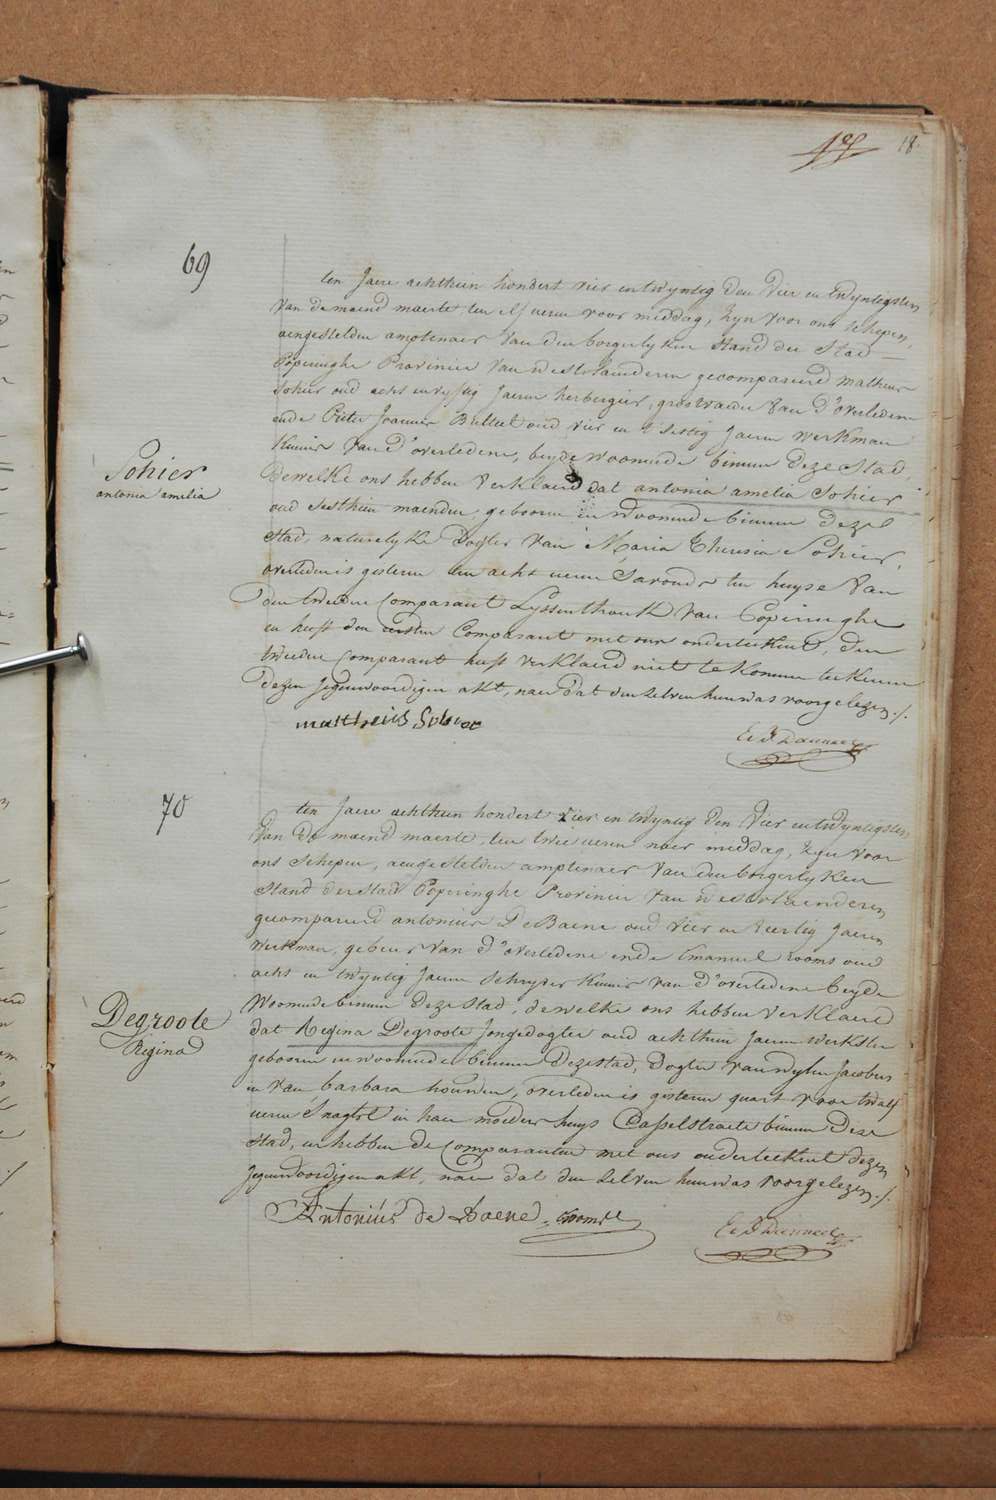 18
69
ten Jaere achthien hondert vier en twyntig Den Vier en twyntigsten
van de maend maerte ten elf ueren voor middag, zyn voor ons schepen,
aengestelden amptenaer van den borgerlyken stand der Stad
Poperinghe Provincie van westvlaenderen gecompareerd Matheus
Sohier oud acht en vyftig Jaeren herbergier, groot vader van d'overledene
ende Pieter Joannes Bulteel oud vier en t'sestig Jaeren werkman
kennis van d'overledene, beyde woonende binnen deze Stad,
Dewelke ons hebben verklaerd dat antonia amelia Sohier
oud sesthien maenden, geboren en woonende binnen deze
stad, naturelyke Dogter van Maria Theresia Sohier,
overleden is gisteren ten acht ueren s'avonds ten huyse van
den tweeden Comparant Lyssenthouk van Poperinghe
en heeft den eersten Comparant met ons onderteekent, den
tweeden Comparant heeft verklaerd niet te konnen teekenen
dezen Jegenwoordigen akt, naer dat den zelven hun was voorgelezen./.
Sohier
antonia amelia
mattheus Sohier
70
ten Jaere achthien hondert Vier en twyntig den Vier en twyntigsten
van de maend maerte, ten twee ueren naer middag, zyn voor
ons schepen, aengestelden amptenaer van den borgerlyken
Stand der stad Poperinghe Provincie van westvlaenderen
gecompareerd antonius DeBaene oud vier en veertig Jaeren
werkman, gebuer van d'overledene ende Emanuel Cooms oud
acht en twyntig Jaeren schryver kennis van d'overledene beyde
Woonende binnen deze stad, dewelke ons hebben verklaerd
dat Regina Degroote Jongedogter oud achthien Jaeren werkster
geboren en woonende binnen deze stad, Dogter van wylen Jacobus
en van barbara houvden, overleden is gisteren quart voor twalf
ueren s'nagts in haer moeders huys Casselstraete binnen Deze
stad, en hebben de Comparanten met ons onderteekent dezen
Jegenwoordigen akt, naer dat den zelven hun was voorgelezen./.
Degroote
Regina
Antonius de Baene